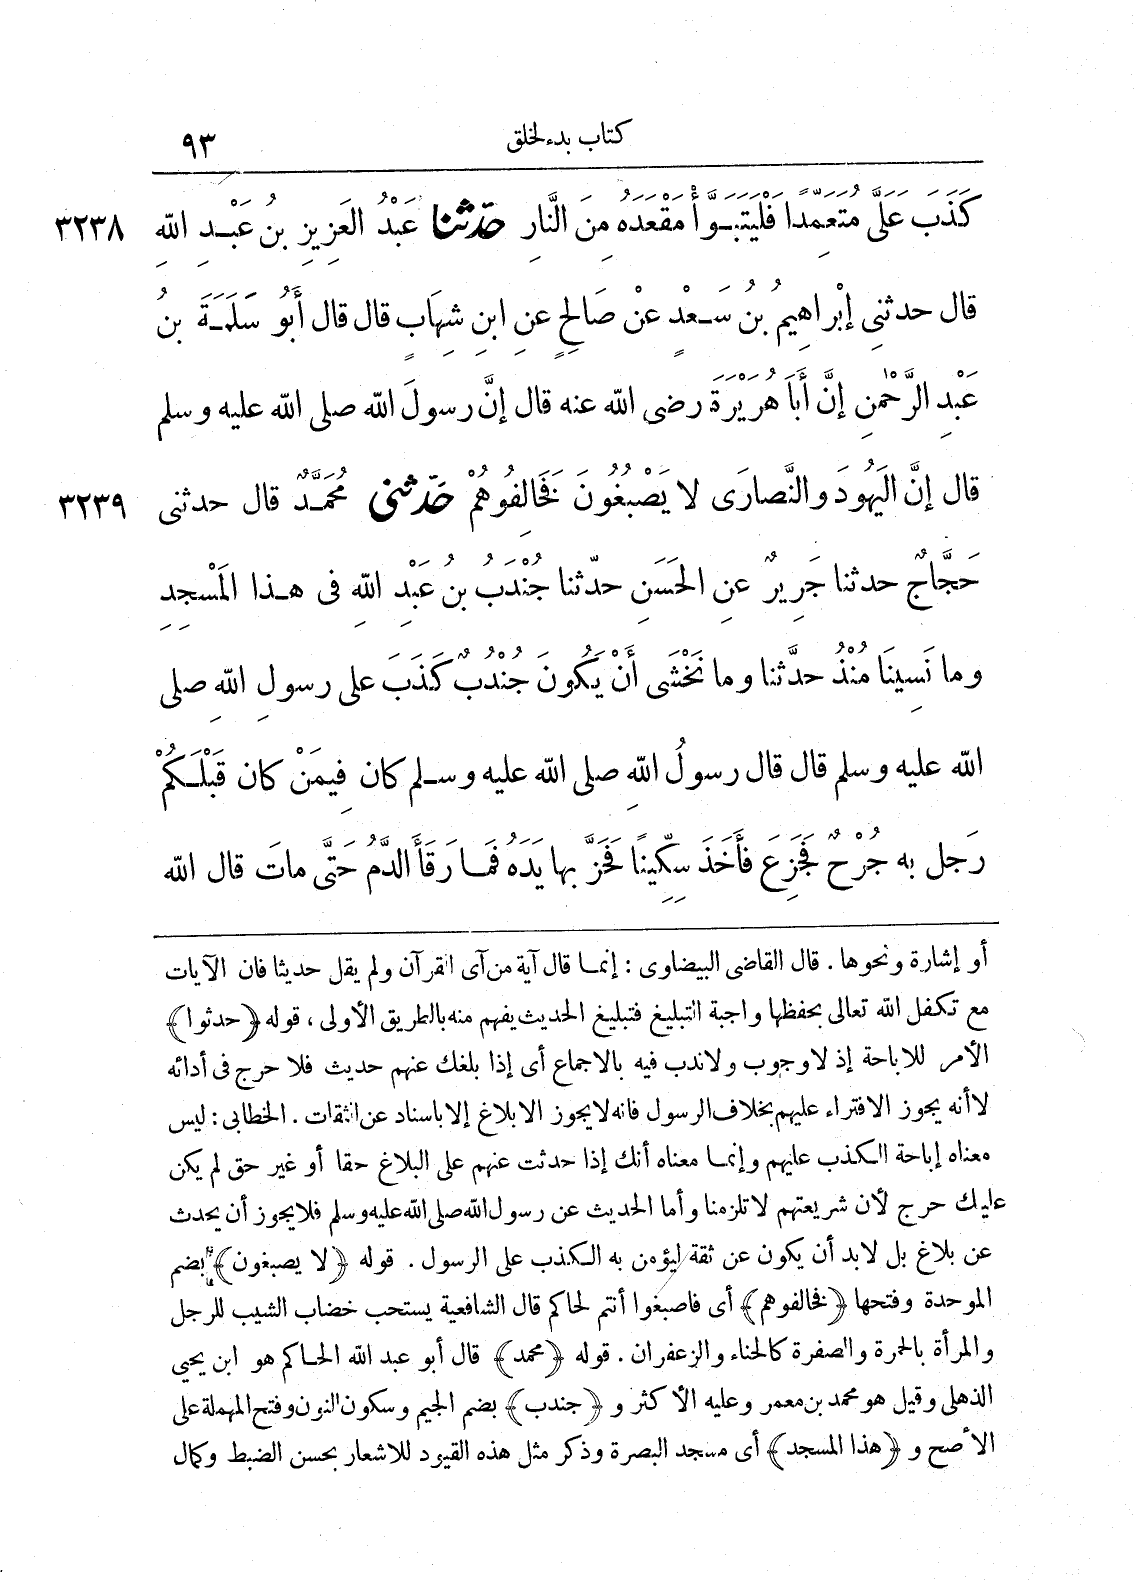 كتاب بدء الخلق ٩٣
كَذَبَ عَلَىَّ مُتَعَمِّدًا فَلْيَتَبَوَّأْ مَقْعَدَهُ مِنَ النَّارِ حَدّثنا عَبْدُ العَزِيزِ بنُ عَبْدِ اللهِ ٣٢٣٨
قال حدثنى إبْراهِيمُ بنُ سَعْدٍ عنْ صَالِحٍ عنِ ابنِ شِهَابٍ قال قال أبُو سَلَمَةَ بنُ
عَبْدِ الرَّحْمنِ إنَّ أَبَا هُرَيْرَةَ رضى الله عنه قال إنَّ رسولَ الله صلى الله عليه وسلم
قال إنَّ اليَهُودَ والنَّصارَى لا يَصْبغُونَ فَخَالِفُوهُمْ حَدّثنى مُحَمَّدٌ قال حدثنى ٣٢٣٩
حَجَّاجٌ حدثنا جَرِيرٌ عنِ الحَسَنِ حدّثنا جُنْدَبُ بنُ عَبْدِ اللهِ فى هذا المَسْجِدِ
وما نَسِينَا مُنْذُ حدَّثنا وما نَخْشَى أَنْ يَكُونَ جُنْدُبٌ كَذَبَ على رسولِ اللهِ صلى
الله عليه وسلم قال قال رسولُ اللهِ صلى الله عليه وسلم كان فِيمَنْ كان قَبْلَكُمْ
رَجل به جُرْحٌ فَجَزِعَ فأَخَذَ سِكِّينًا فَحَزَّ بها يَدَهُ فَما رَقَأَ الدَّمُ حَتَّى ماتَ قال الله
أو إشارة ونحوها . قال القاضى البيضاوى : إنما قال آية من آى القرآن ولم يقل حديثا فان الآيات
مع تكفل الله تعالى بحفظها واجبة التبليغ فتبليغ الحديث يفهم منه بالطريق الأولى ، قوله ﴿حدثوا﴾
الأمر للاباحة إذ لا وجوب ولا ندب فيه بالاجماع أى إذا بلغك عنهم حديث فلا حرج فى أدائه
لا أنه يجوز الافتراء عليهم بخلاف الرسول فانه لا يجوز الابلاغ إلا باسناد عن الثقات . الخطابى : ليس
معناه إباحة الكذب عليهم وإنما معناه أنك إذا حدثت عنهم على البلاغ حقا أو غير حق لم يكن
عليك حرج لأن شريعتهم لا تلزمنا وأما الحديث عن رسول الله صلى الله عليه وسلم فلا يجوز أن يحدث
عن بلاغ بل لابد أن يكون عن ثقة ليؤمن به الكذب على الرسول . قوله ﴿لا يصبغون﴾ بضم
الموحدة وفتحها ﴿فخالفوهم﴾ أى فاصبغوا أنتم لحاكم قال الشافعية يستحب خضاب الشيب للرجل
والمرأة بالحمرة والصفرة كالحناء والزعفران . قوله ﴿محمد﴾ قال أبو عبد الله الحاكم هو ابن يحيى
الذهلى وقيل هو محمد بن معمر وعليه الأكثر و ﴿جندب﴾ بضم الجيم وسكون النون وفتح المهملة على
الأصح و ﴿هذا المسجد﴾ أى مسجد البصرة وذكر مثل هذه القيود للاشعار بحسن الضبط وكمال